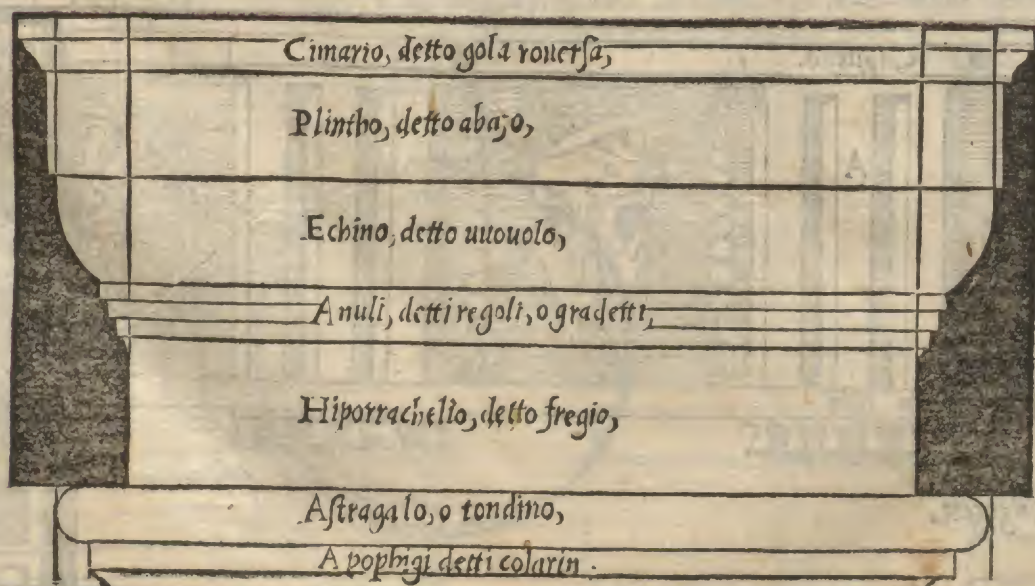 Cimatio, detto gola rouerſa,
Plintho, detto abaco,
Echino, detto uuouolo,
Anuli, detti regoli, o gradetti,
Hipotrachelio, detto fregio,
Aſtragalo, o tondino,
Apophigi detti colarin.
A